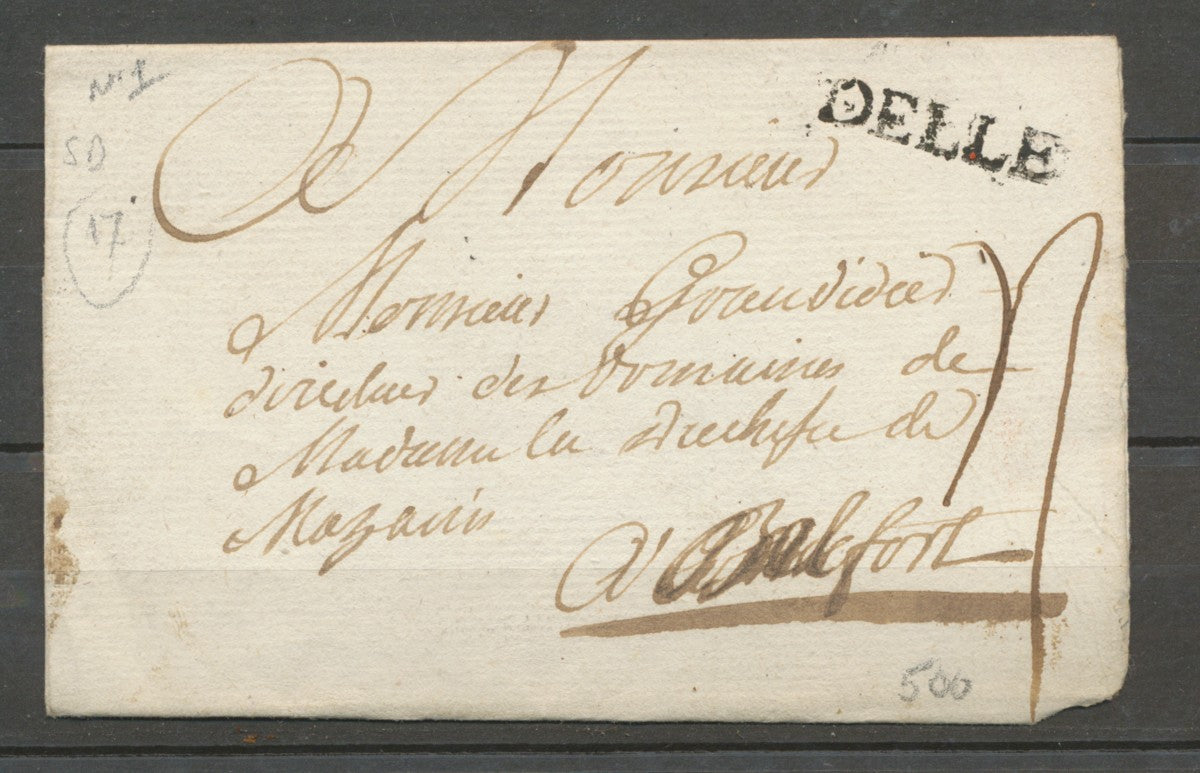 N°1
SD
17
DELLE
A Monsieur
Monsieur Grandidier
directeur des Domaines de
Madame la Duchesse de
Mazarin
A Belfort
500